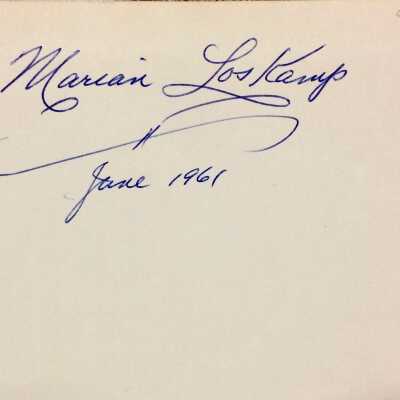 Marian LosKamp
June 1961